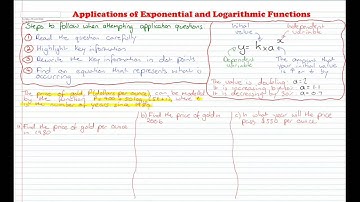 Applications of Exponential and Logarithmic Functions
Steps to follow when attempting application questions
① Read the question carefully
② Highlight key information
③ Rewrite the key information in dot points
④ Find an equation that represents what is occurring
value
Independent variable
y = k x a^x
Dependent variable
The amount that your initial value is × or ÷ by
The value is doubling a = 2
It is increasing by a = 1.1
It is decreasing by 30% a = 0.7
The price of gold, P(dollars per ounce), can be modelled
by the function
the number of years since
a) Find the price of gold per ounce
in 1980
(b) Find the price of gold in
c) In what year will the price
pass $550 per ounce